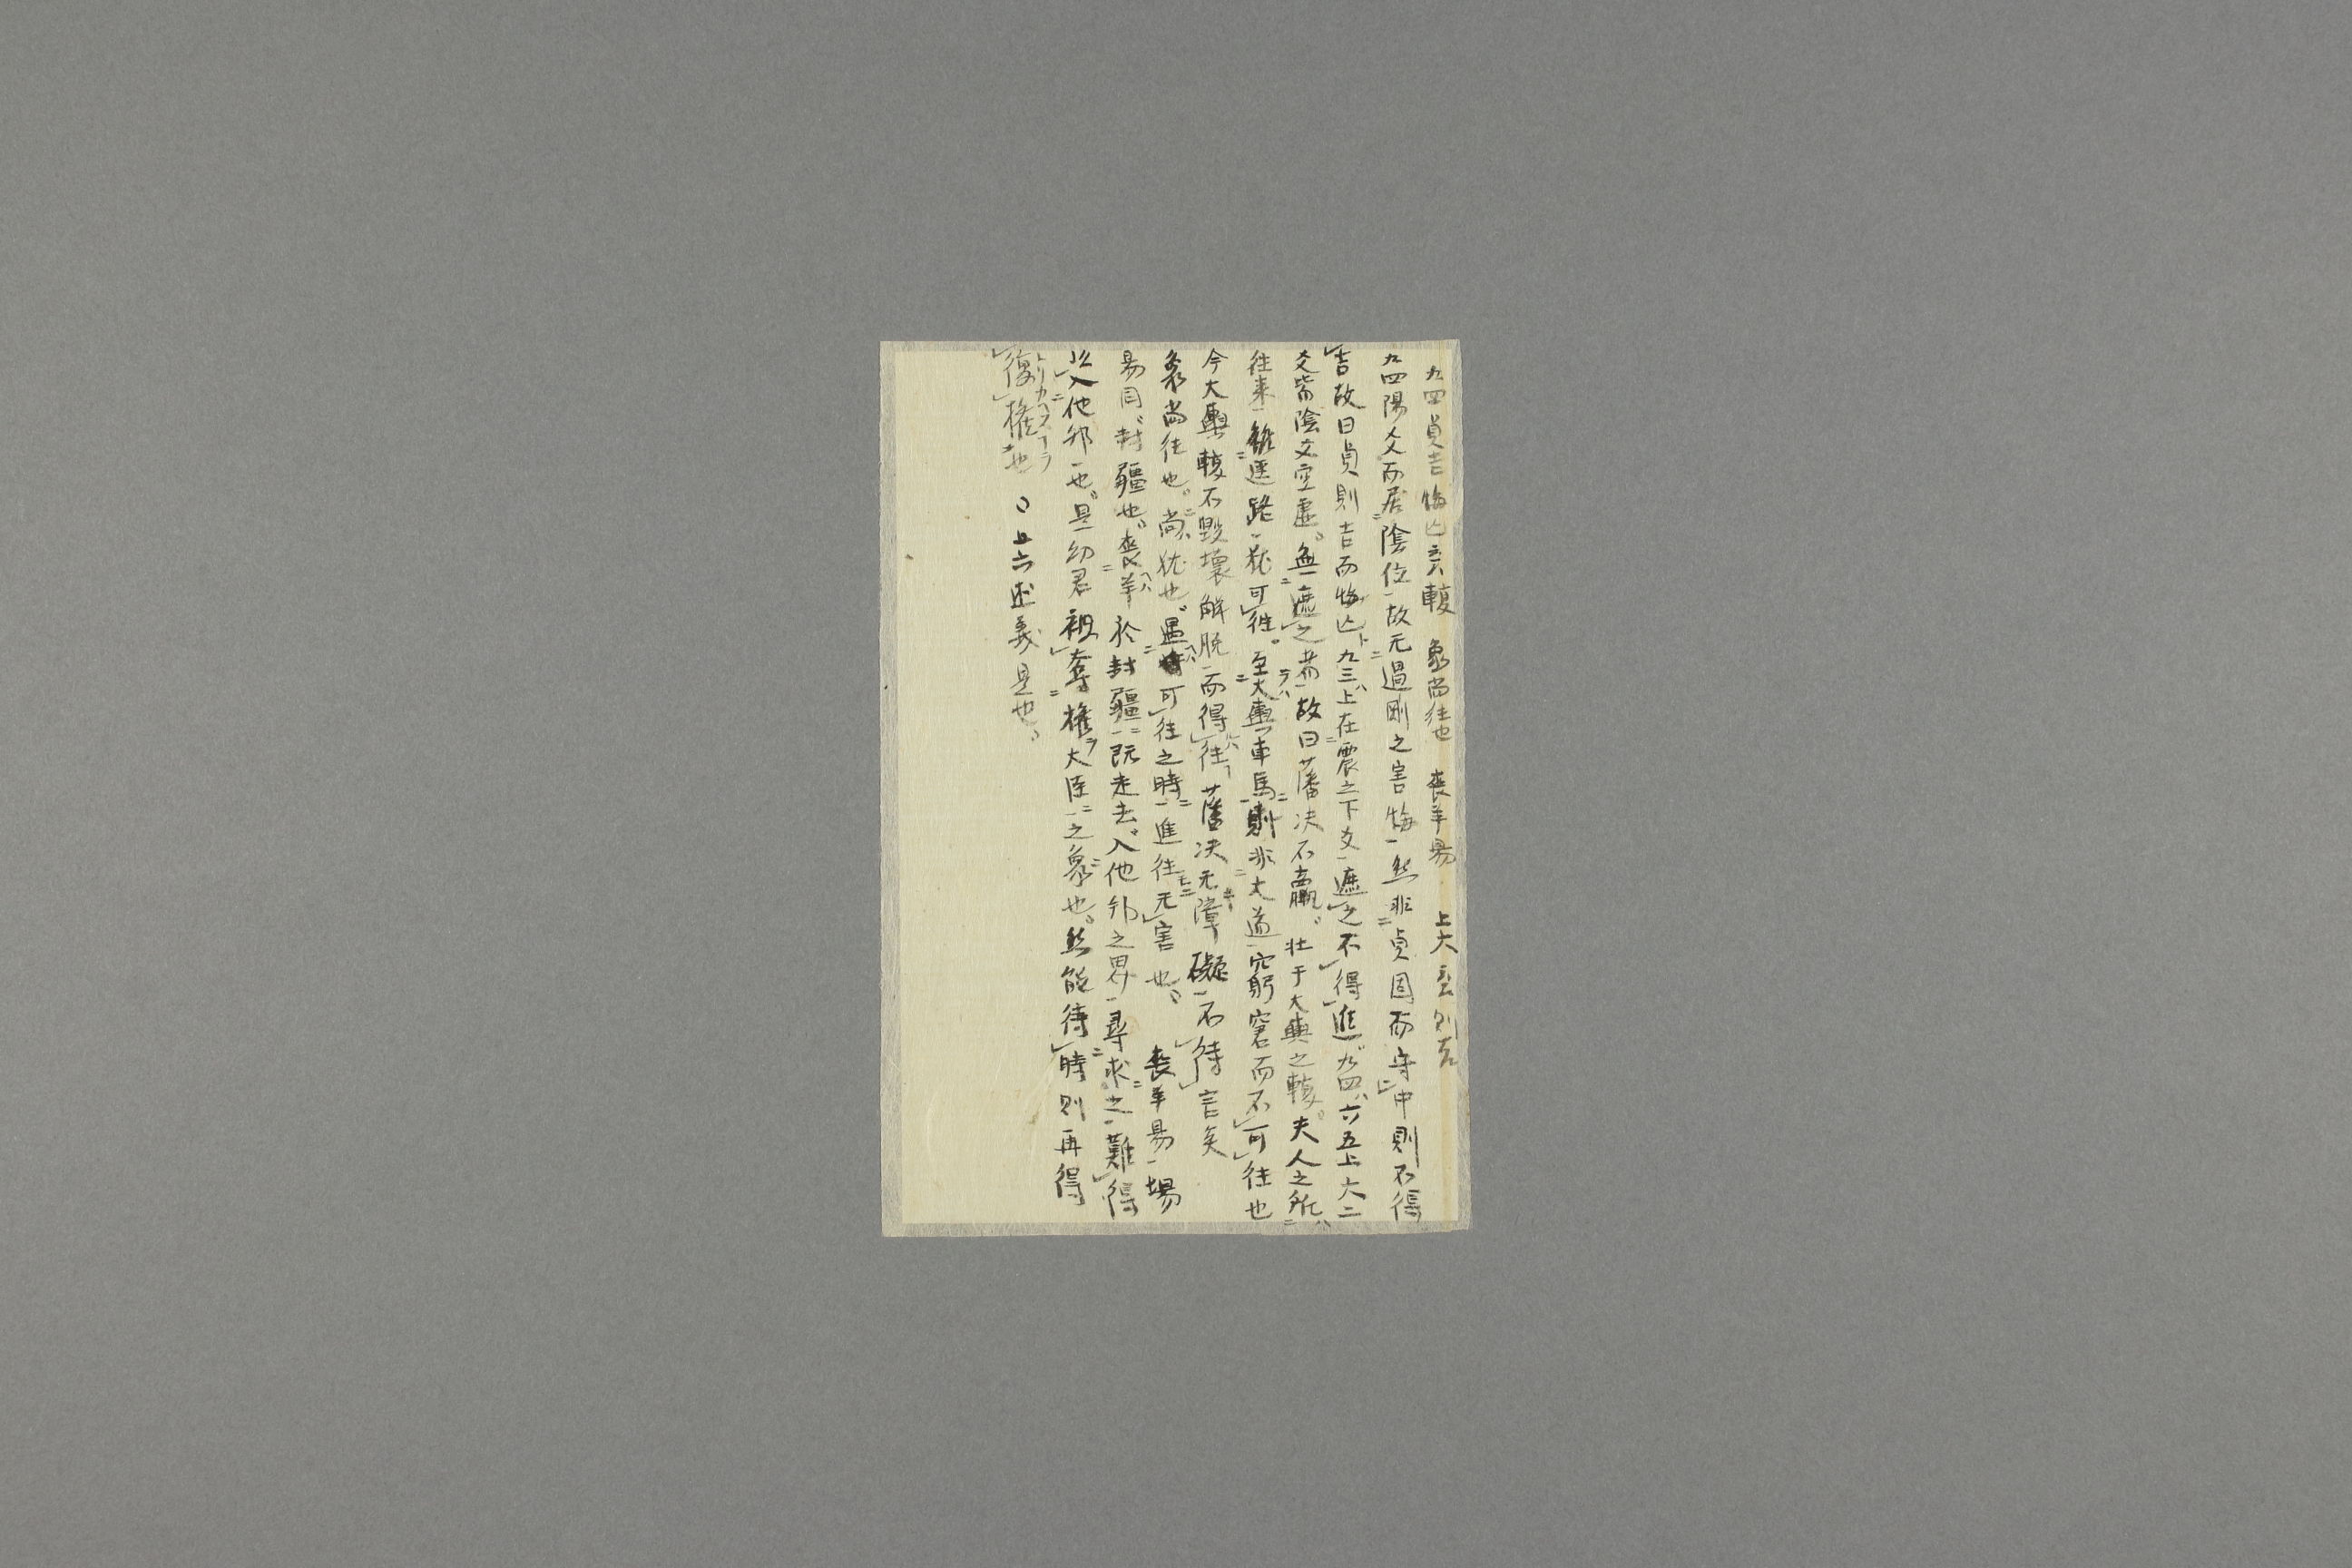 九四貞吉悔亡至輹　象尚往也　喪羊易　上六至則吉
九四陽爻而居陰位故无過剛之害悔然非貞固而守中則不得
吉故曰貞則吉而悔亡九三上在震之下爻遮之不得進九四六五上六二
爻皆陰爻空虛無遮之者故曰藩决不羸壮于大輿之輹夫人之所
往来雖逕路猶可往至大輿車馬則非大道窮窘而不可往也
今大輿輹不毀壞解脱而得往藩决无障礙不待言矣
象尚往也尚猶也遇可往之時進往无害也　喪羊易場
易同封疆也喪羊於封疆既走去入他邦之界尋求之難得
以入他邦也是幼君被奪権大臣之象也然能待時則再得
復権也　〇上六述義是也